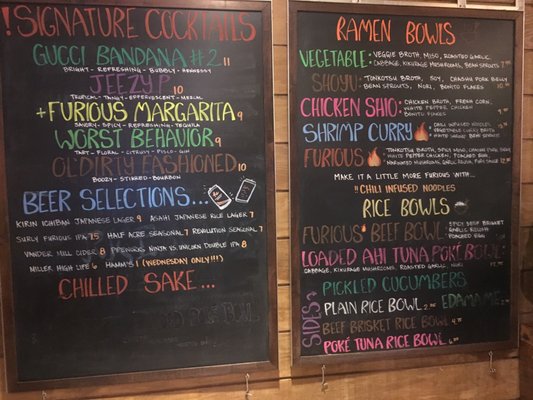 !SIGNATURE COCKTAILS
GUCCI BANDANA #2 11
BRIGHT - REFRESHING - BUBBLY - HENNESSY
JEEZY 10
TROPICAL - TANGY - EFFERVESCENT - MEZCAL
+FURIOUS MARGARITA 9
SANDRY - SPICY - REFRESHING - TEQUILA
WORST BEHAVIOR 9
TART - FLORAL - CITRUSY - PISCO - GIN
OLD FASHIONED 10
BOOZY - STIRRED - BOURBON
BEER SELECTIONS...
KIRIN ICHIBAN JAPANESE LAGER 9 ASAHI JAPANESE RICE LAGER 7
SURLY FURIOUS IPA 7.5 HALF ACRE SEASONAL 7 REVOLUTION SEASONAL 7
VANDER MILL CIDER 8 PIPEWORKS NINJA VS. UNICORN DOUBLE IPA 8
MILLER HIGH LIFE 6 HAMM'S 1 (WEDNESDAY ONLY!!!)
CHILLED SAKE...
RAMEN BOWLS
VEGETABLE: VEGGIE BROTH, MISO, ROASTED GARLIC,
CABBAGE, KIKURAGE MUSHROOMS, BEAN SPROUTS
SHOYU: TONKOTSU BROTH, SOY, CHASHU PORK BELLY
BEAN SPROUTS, NORI, BONITO FLAKES
CHICKEN SHIO: CHICKEN BROTH, FRESH CORN,
WHITE PEPPER CHICKEN,
BONITO FLAKES
SHRIMP CURRY
VEGETABLE CURRY BROTH
FURIOUS
MAKE IT A LITTLE MORE FURIOUS WITH...
!!CHILI INFUSED NOODLES
RICE BOWLS
FURIOUS BEEF BOWL: SPICY BEEF BRISKET
GARLIC RELISH
POACHED EGG
LOADED AHI TUNA POKÉ BOWL:
CABBAGE, KIKURAGE MUSHROOMS, ROASTED GARLIC, NORI
SIDES
PICKLED CUCUMBERS
PLAIN RICE BOWL EDAMAME
BEEF BRISKET RICE BOWL
POKÉ TUNA RICE BOWL